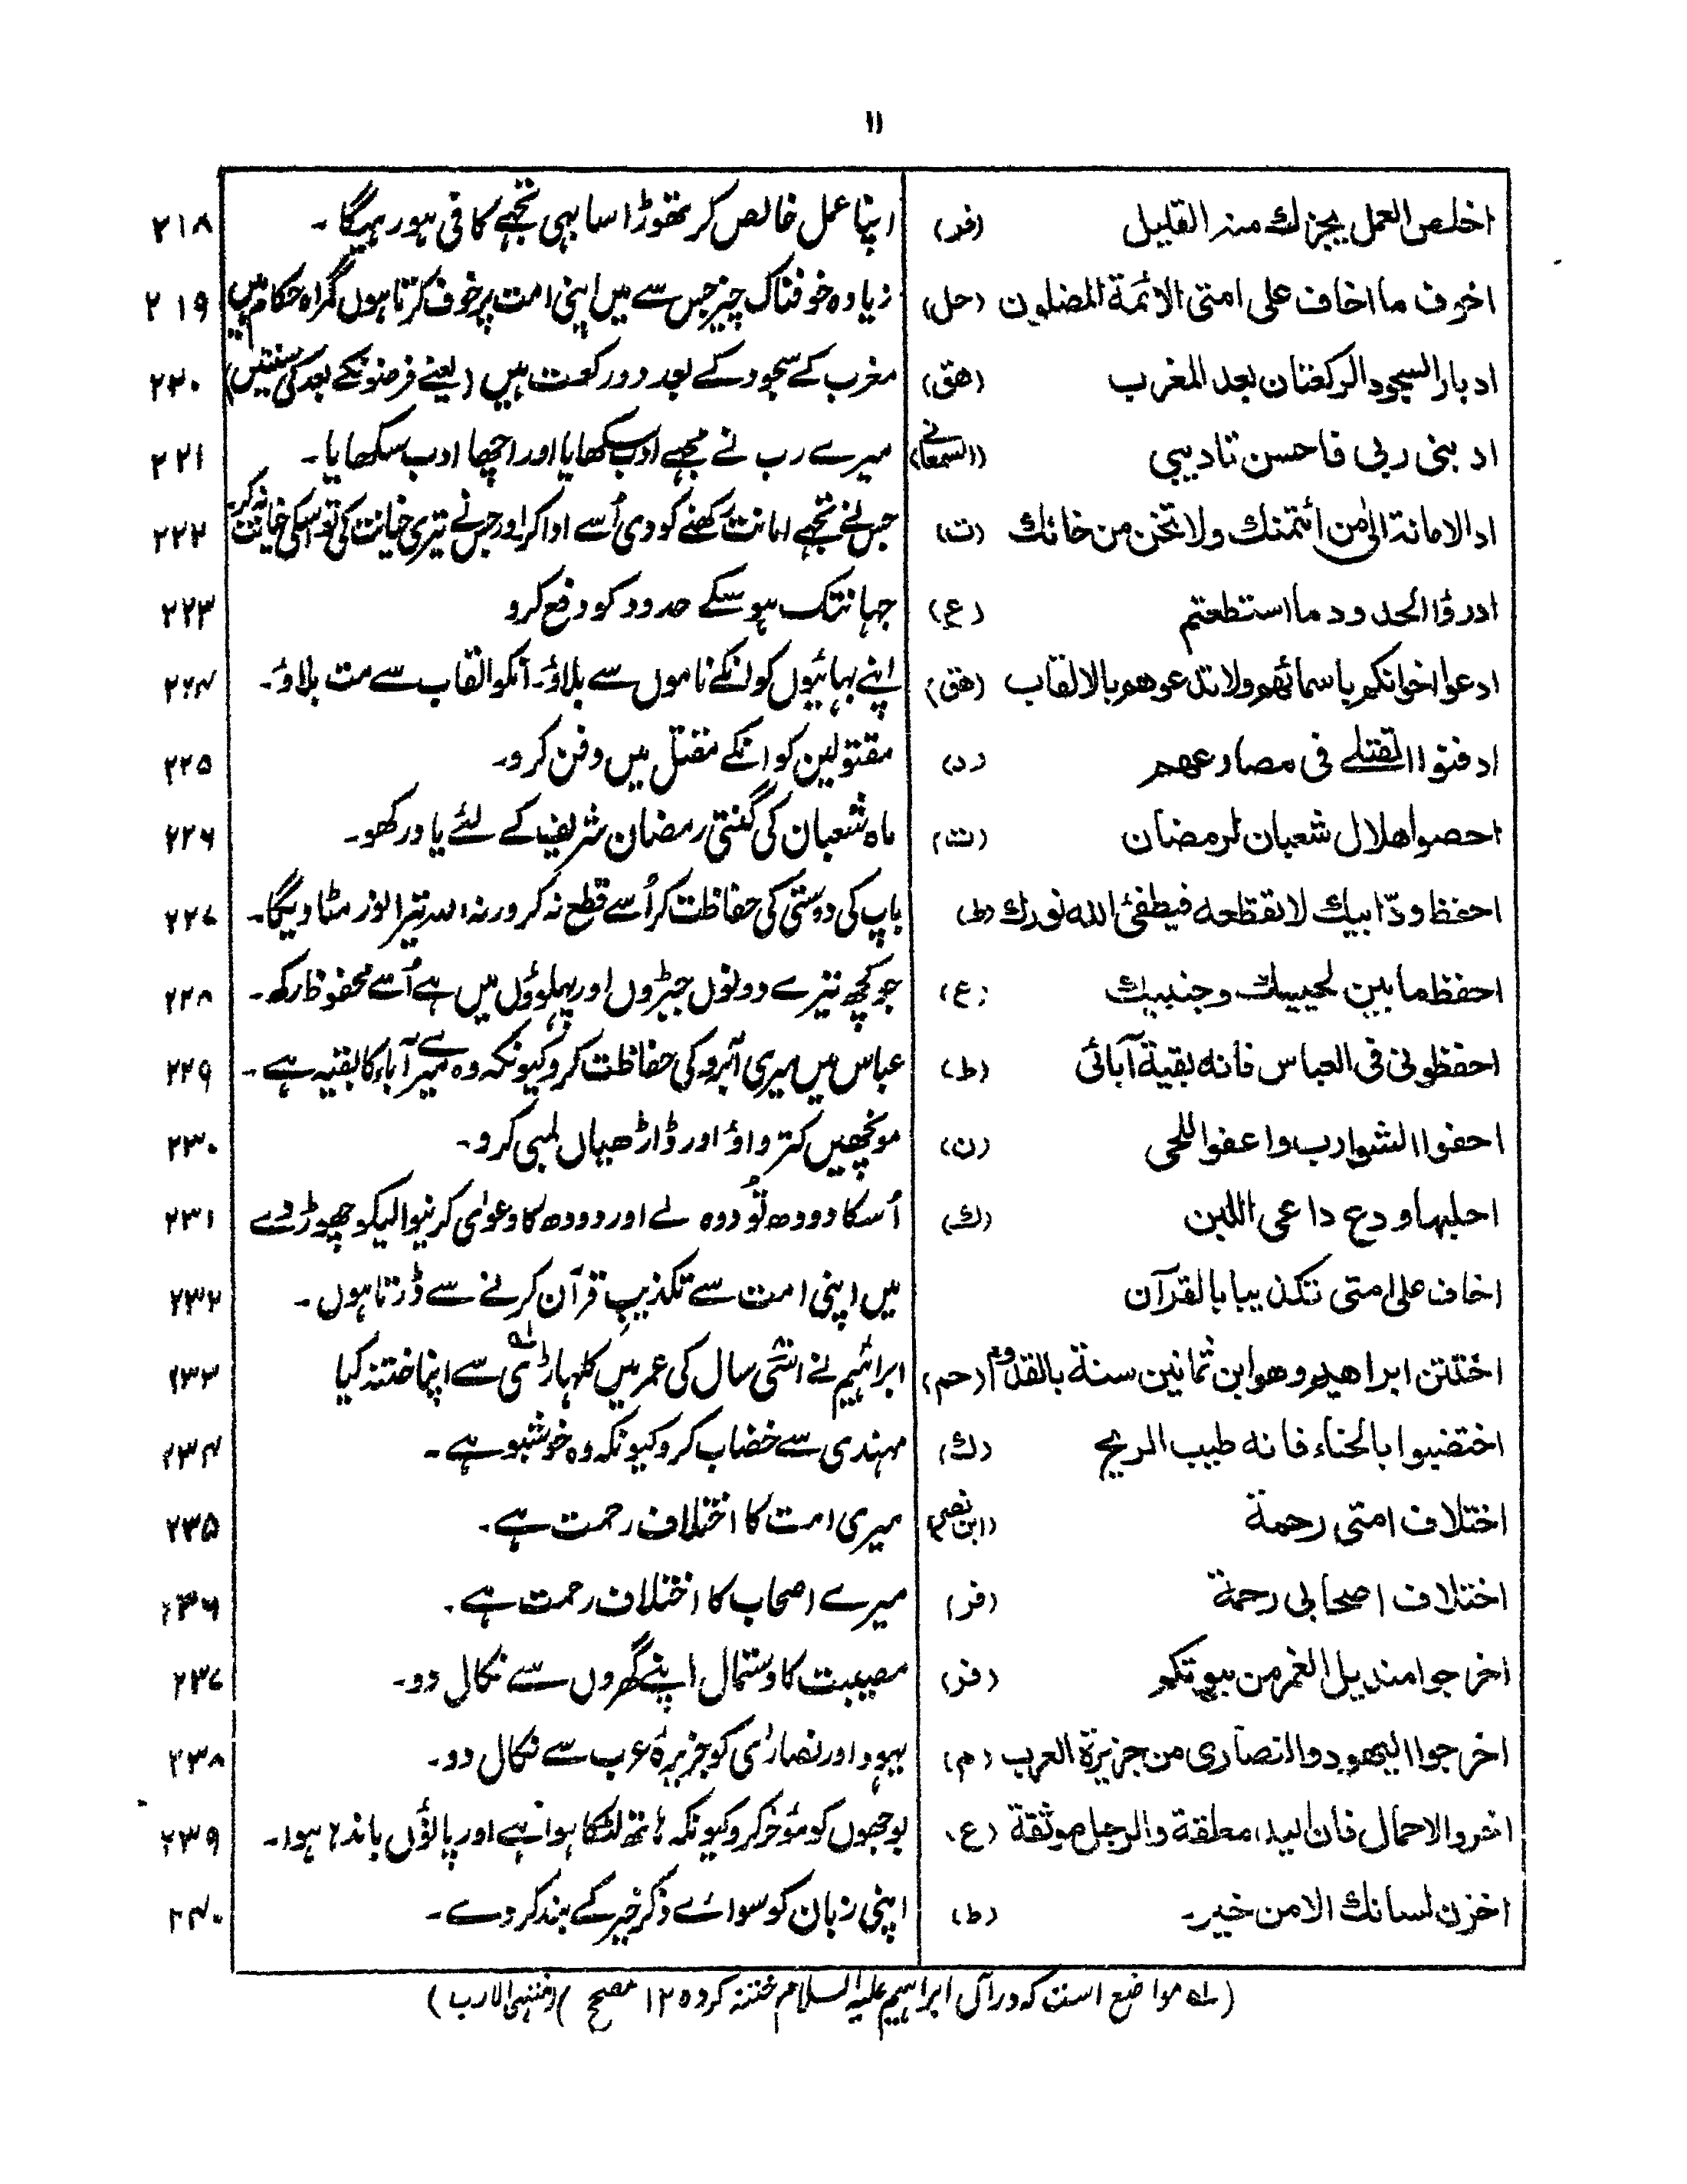 ۱۱
اخلص العمل يجزك منه القليل (فر) اپنا عمل خالص کر تھوڑا سا بہی تجھے کافی ہو رہیگا ۔ ۲۱۸
اخوف ما اخاف على امتى الائمة المضلون (حل) زیادہ خوفناک چیز جس سے میں اپنی امت پر خوف کرتا ہوں گمراہ حکام ہیں ۲۱۹
ادبار السجود الركعتان بعد المغرب (هق) مغرب کے سجود کے بعد دو رکعت ہیں (یعنے فرضونکے بعد کی سنتیں) ۲۲۰
ادبنى ربى فاحسن تاديبى (السمعانے) میرے رب نے مجہے ادب سکھایا اور اچھا ادب سکھایا ۔ ۲۲۱
اد الامانة الى من ائتمنك ولا تخن من خانك (ت) جس نے تجھے امانت رکھنے کو دی اُسے ادا کر اور جس نے تیری خیانت کی تو اسکی خیانت نہ کر ۔ ۲۲۲
ادرؤا الحدود ما استطعتم (ع) جہانتک ہو سکے حدود کو دفع کرو ۲۲۳
ادعوا اخوانكم باسمائهم ولا تدعوهم بالالقاب (هق) اپنے بہائیوں کو انکے ناموں سے بلاؤ ۔ انکو القاب سے مت بلاؤ ۔ ۲۲۴
ادفنوا القتلے فى مصارعهم (د) مقتولین کو انکے مقتل میں دفن کرو ۔ ۲۲۵
احصوا هلال شعبان لرمضان (ت) ماہ شعبان کی گنتی رمضان شریف کے لئے یاد رکھو ۔ ۲۲۶
احفظ ودّ ابيك لا تقطعه فيطفئ الله نورك (ط) باپ کی دوستی کی حفاظت کر اُسے قطع نہ کر ورنہ اللہ تیرا نور مٹا دیگا ۔ ۲۲۷
احفظ ما بين لحييك وجنبيك (ع) جو کچھ تیرے دونوں جبڑوں اور پہلوؤں میں ہے اُسے محفوظ رکھ ۔ ۲۲۸
احفظونى فى العباس فانه بقية آبائى (ط) عباس میں میری آبرو کی حفاظت کرو کیونکہ وہ میرے آباء کا بقیہ ہے ۔ ۲۲۹
احفوا الشوارب واعفوا اللحى (ن) مونچھیں کترواؤ اور ڈاڑھیاں لمبی کرو ۔ ۲۳۰
احلبها ودع داعى اللبن (ك) اُسکا دودھ تُو دوہ لے اور دودھ کا دعوٰی کرنیوالیکو چھوڑ دے ۲۳۱
اخاف على امتى تكذيبا بالقرآن میں اپنی امت سے تکذیبِ قرآن کرنے سے ڈرتا ہوں ۔ ۲۳۲
اختتن ابراهيم وهو ابن ثمانين سنة بالقدوم (حم) ابراہیم نے اسّی سال کی عمر میں کلہاڑی سے اپنا ختنہ کیا ۲۳۳
اختضبوا بالحناء فانه طيب الريح (ك) مہندی سے خضاب کرو کیونکہ وہ خوشبو ہے ۔ ۲۳۴
اختلاف امتى رحمة (ابن نصر) میری امت کا اختلاف رحمت ہے ۔ ۲۳۵
اختلاف اصحابى رحمة (فر) میرے اصحاب کا اختلاف رحمت ہے ۔ ۲۳۶
اخرجوا منديل الغمر من بيوتكم (فر) مصیبت کا دستمال اپنے گھروں سے نکال دو ۔ ۲۳۷
اخرجوا اليهود والنصارى من جزيرة العرب (م) یہود اور نصارٰی کو جزیرۂ عرب سے نکال دو ۔ ۲۳۸
اخروا الاحمال فان اليد معلقة والرجل موثقة (ع) بوجھوں کو مؤخر کرو کیونکہ ہاتھ لٹکا ہوا ہے اور پاؤں باندہا ہوا ۔ ۲۳۹
اخزن لسانك الا من خير ۔ (ط) اپنی زبان کو سوائے ذکر خیر کے بند کر دے ۔ ۲۴۰
(لہ مواضع است کہ در آں ابراہیم علیہ السلام ختنہ کردہ ۱۲ مصحح) (منتہی الارب)